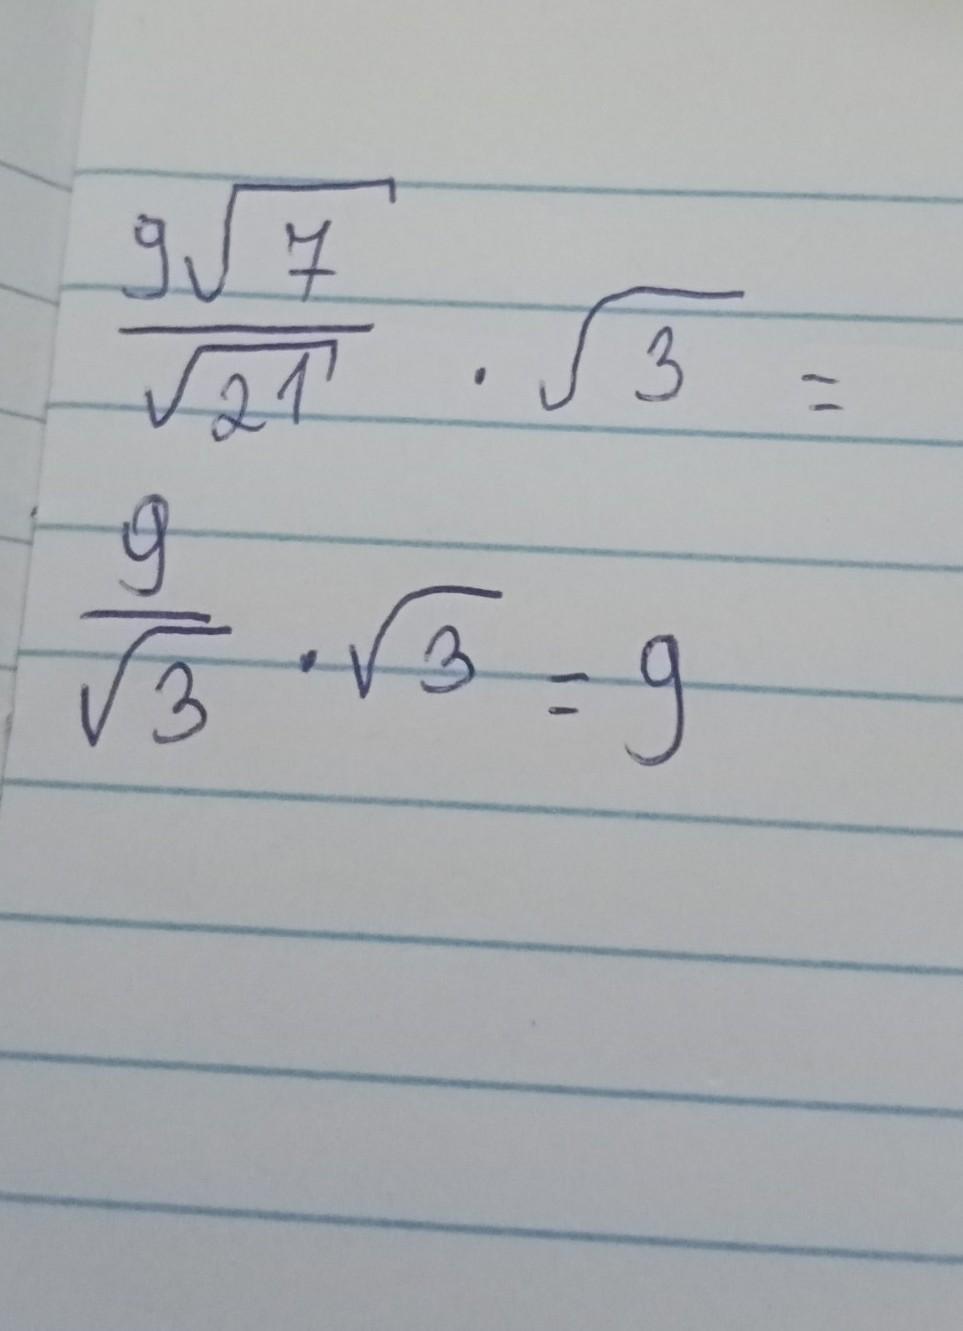 9√7/√21 · √3 =
9/√3 · √3 = 9